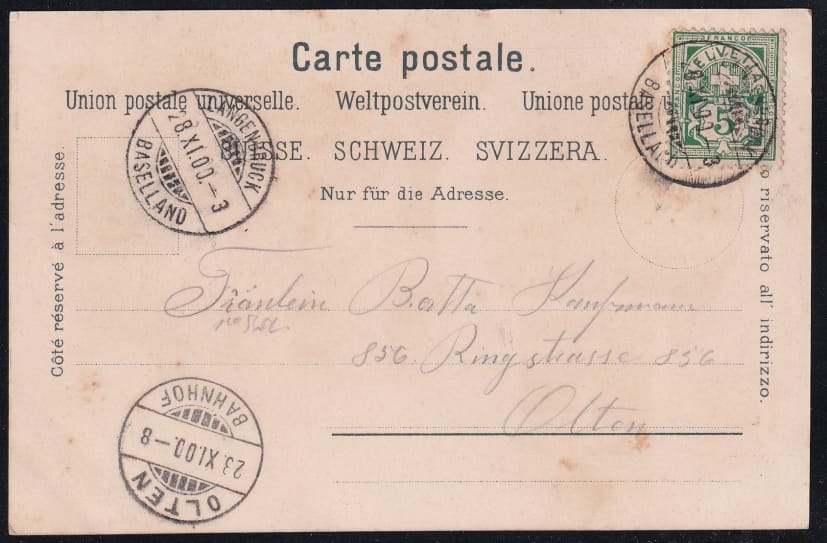 Carte postale.
Union postale universelle. Weltpostverein. Unione postale
SSE. SCHWEIZ. SVIZZERA.
Nur für die Adresse.
Côté réservé à l'adresse.
o riservato all' indirizzo.
FRANCO
HELVETIA
5
BASELLAND
LANGENBRUCK
28.XI.00.–3
BASELLAND
Fräulein Berta Kaufmann
856. Ringstrasse 856
Olten
BAHNHOF
23.XI.00.–8
OLTEN